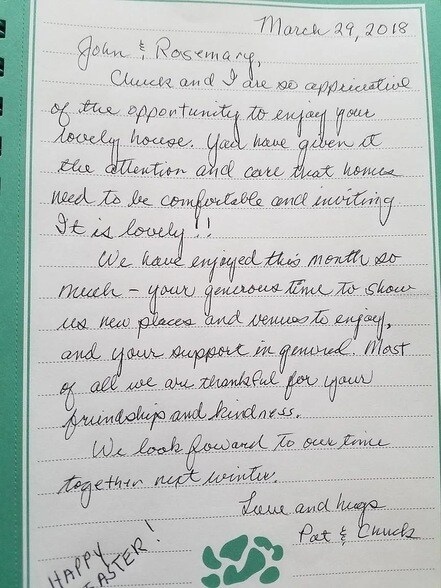 March 29, 2018
John & Rosemary,
Chuck and I are so appriciative
of the opportunity to enjoy your
lovely house. You have given it
the attention and care that homes
need to be comfortable and inviting
It is lovely!!
We have enjoyed this month so
much - your generous time to show
us new places and venues to enjoy,
and your support in general. Most
of all we are thankful for your
friendship and kindness.
We look foward to our time
together next winter.
Love and hugs
Pat & Chuck
HAPPY
EASTER!